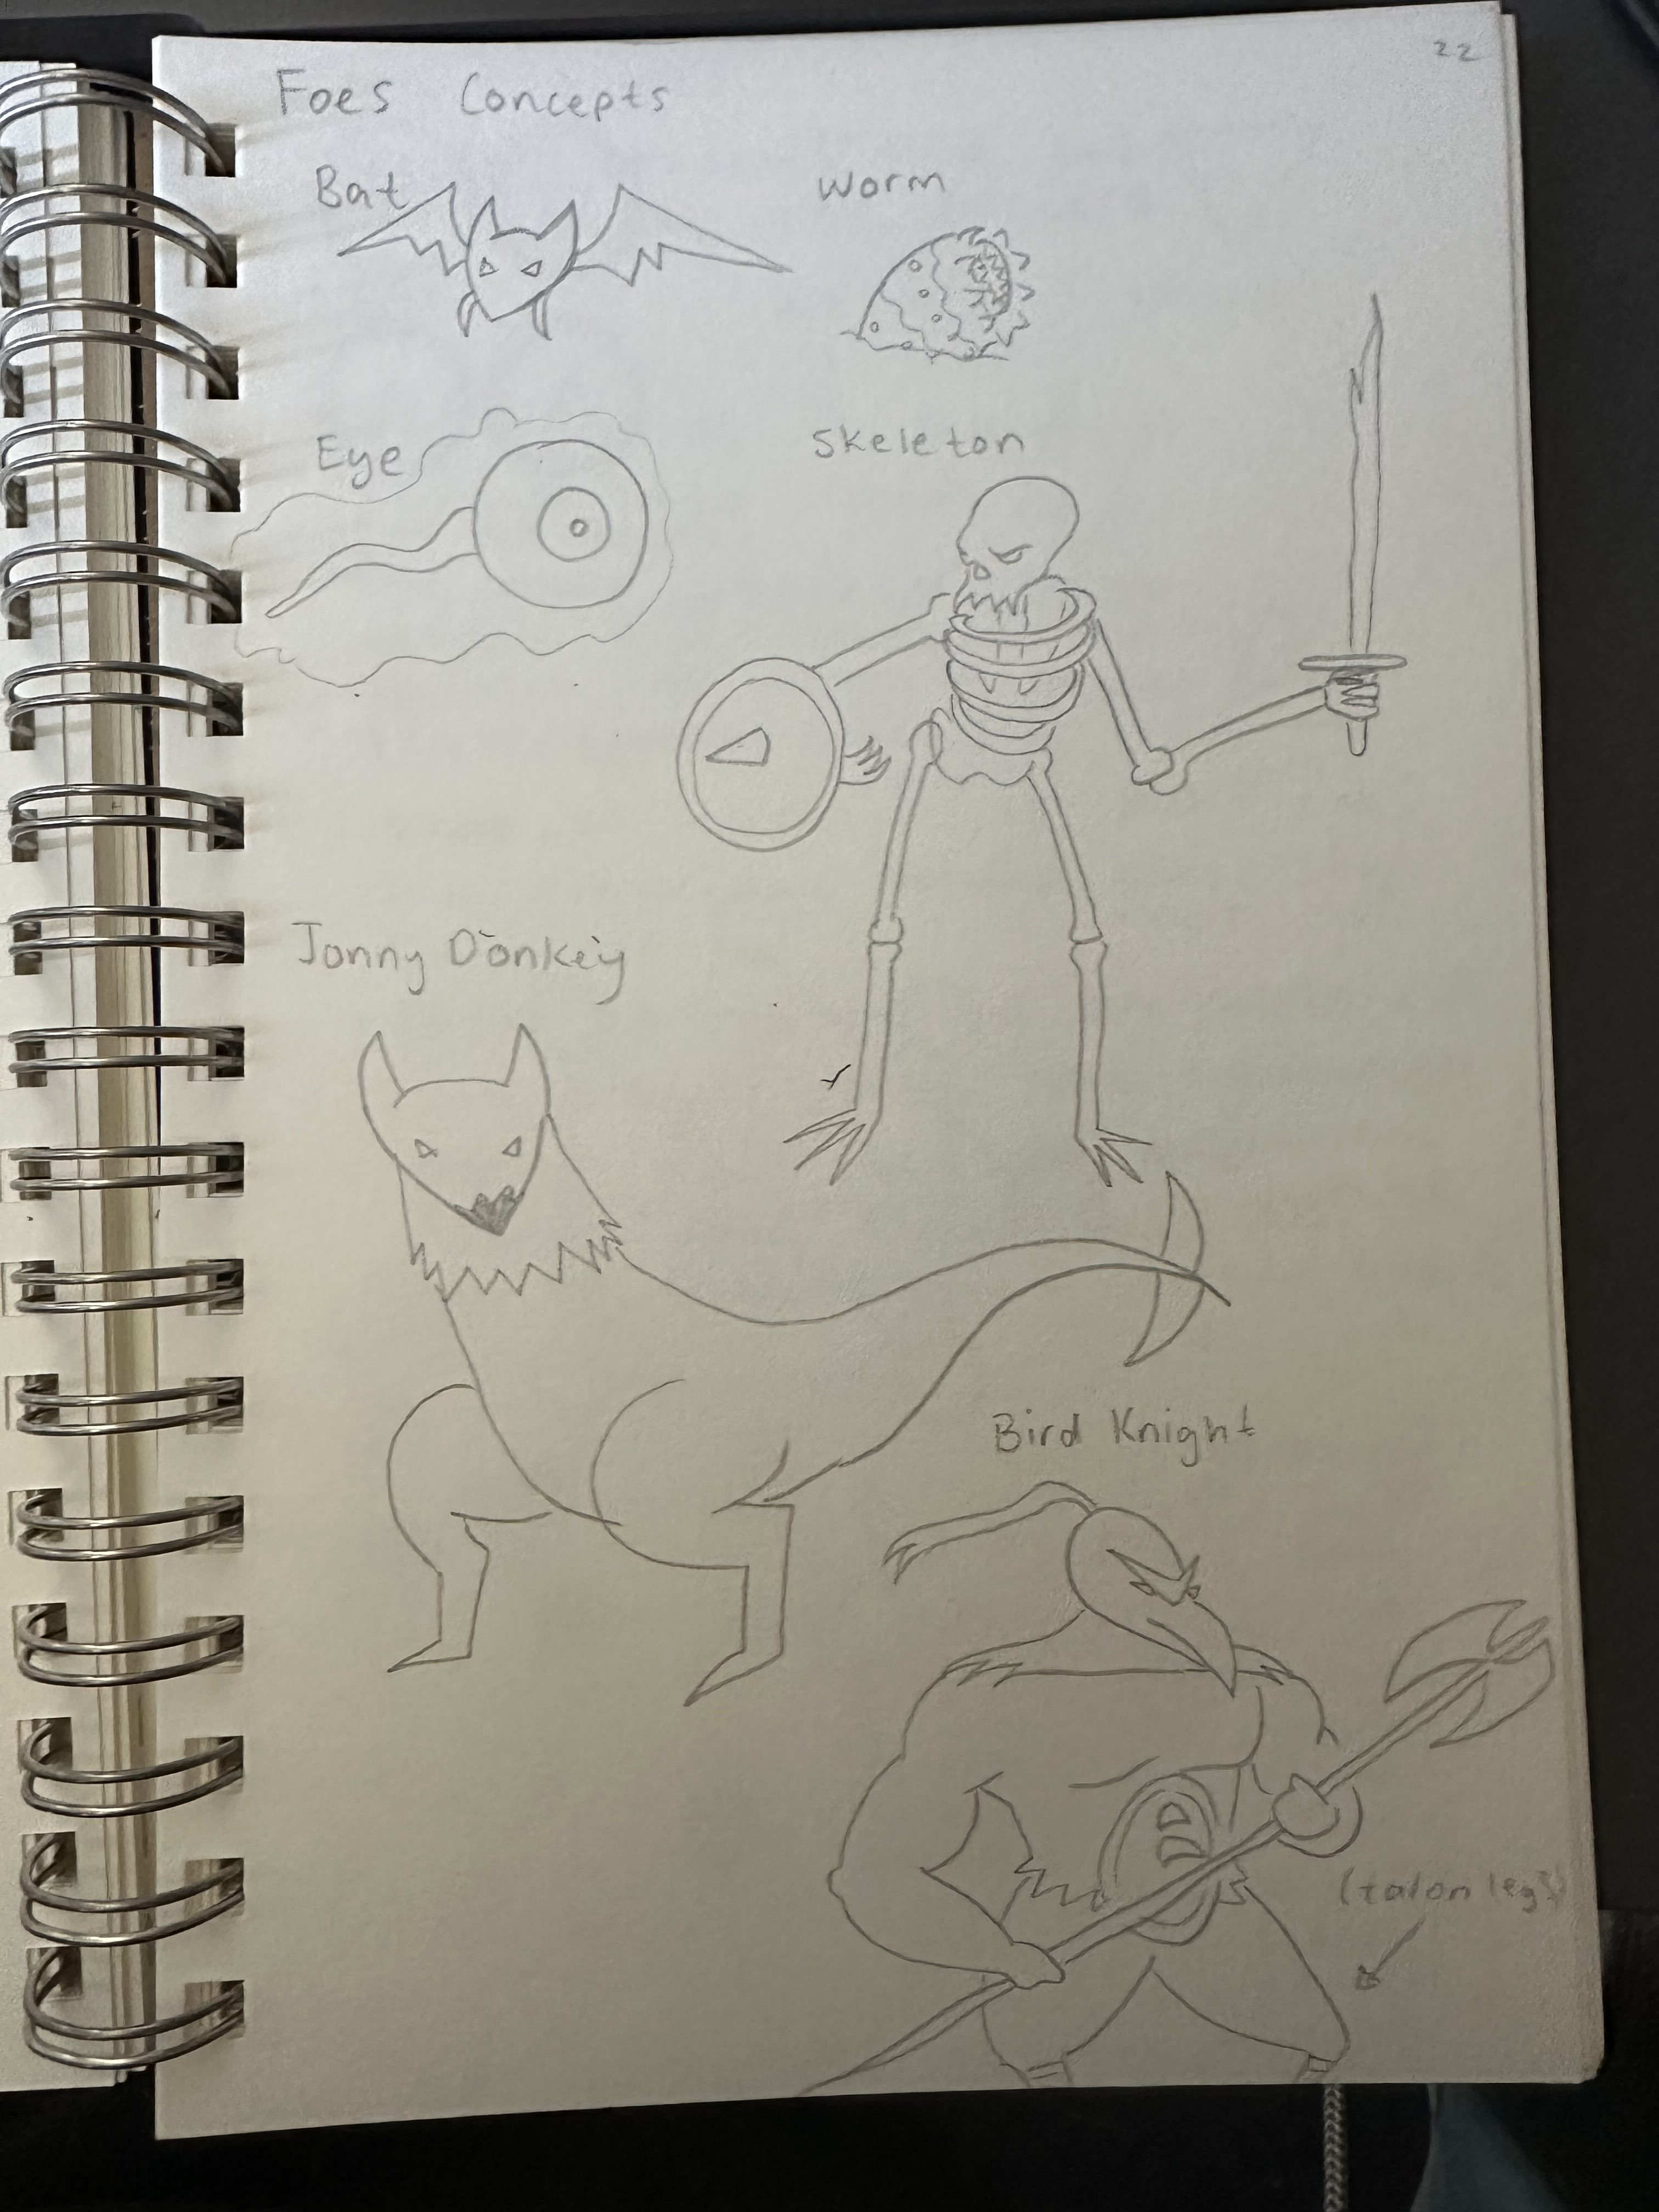 22
Foes Concepts
Bat
Worm
Eye
Skeleton
Jonny Donkey
Bird Knight
(talon legs)